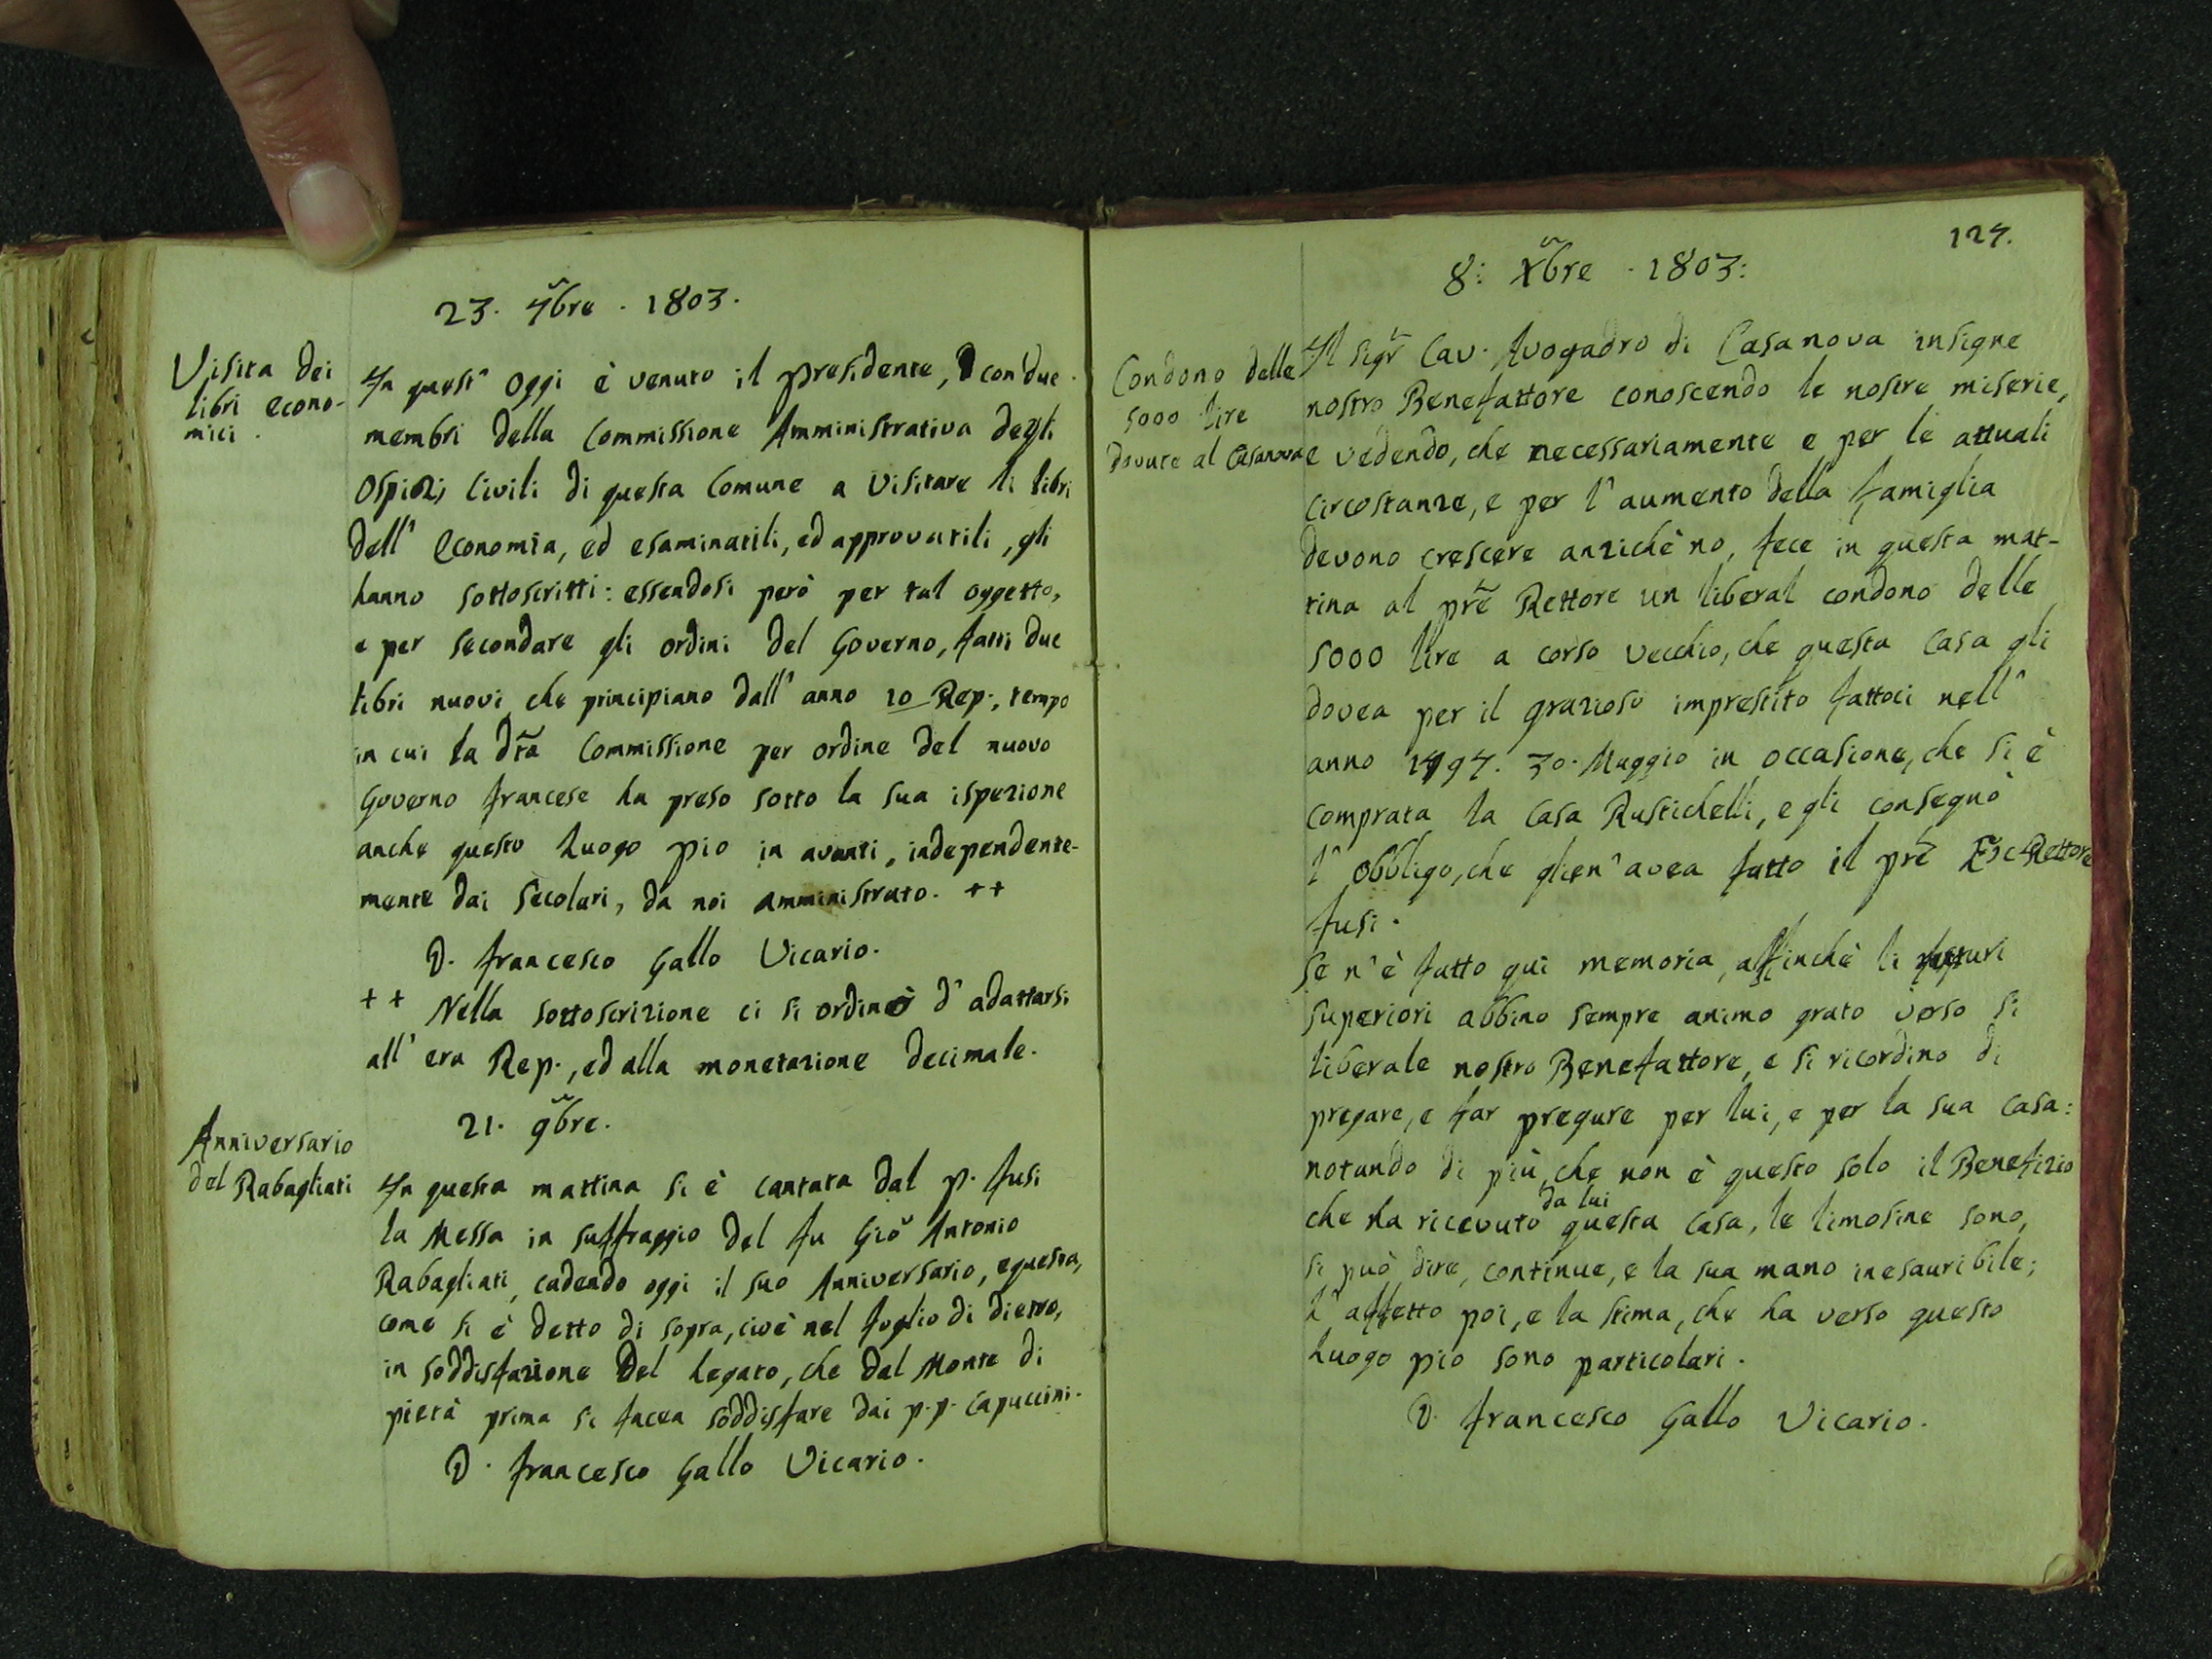 23. 7bre. 1803.
Visita dei
libri econo-
mici.
In quest' oggi è venuto il presidente, con due
membri della Commissione Amministrativa degli
Ospizj Civili di questa Comune a visitare li libri
dell' Economia, ed esaminatili, ed approvatili, gli
hanno sottoscritti: essendosi però per tal oggetto,
e per secondare gli ordini del Governo, fatti due
libri nuovi che principiano dall' anno 10 Rep., tempo
in cui la dta Commissione per ordine del nuovo
Governo francese ha preso sotto la sua ispezione
anche questo Luogo pio in avanti, independente-
mente dai Secolari, da noi amministrato. ++
D. francesco Gallo Vicario.
++ Nella sottoscrizione ci si ordinò d' adattarsi
all' era Rep., ed alla monetazione decimale.
21. 9bre.
Anniversario
del Rabagliati
In questa mattina si è cantata dal p. fusi
la Messa in suffraggio del fu Gio Antonio
Rabagliati, cadendo oggi il suo Anniversario, e questa,
come si è detto di sopra, cioè nel foglio di dietro,
in soddisfazione del Legato, che dal Monte di
pietà prima si facea soddisfare dai p.p. Capuccini.
D. francesco Gallo Vicario.
127.
8: Xbre. 1803:
Condono delle
5000 lire
dovute al Casanova
Il Sigr Cav. Avogadro di Casanova insigne
nostro Benefattore conoscendo le nostre miserie,
e vedendo, che necessariamente e per le attuali
circostanze, e per l' aumento della famiglia
devono crescere anzichè no, fece in questa mat-
tina al pre Rettore un liberal condono delle
5000 lire a corso vecchio, che questa Casa gli
dovea per il grazioso imprestito fattoci nell'
anno 1797. 30. Maggio in occasione, che si è
comprata la Casa Rustichelli, e gli consegnò
l' obbligo, che glien' avea fatto il pre Exc-Rettore
fusi.
Se n' è fatto quì memoria, affinchè li futuri
superiori abbino sempre animo grato verso si
liberale nostro Benefattore, e si ricordino di
pregare, e far pregare per lui, e per la sua casa:
notando di più, che non è questo solo il Benefizio
che ha ricevuto da lui questa Casa, le limosine sono,
si può dire, continue, e la sua mano inesauribile;
l' affetto poi, e la stima, che ha verso questo
Luogo pio sono particolari.
D. francesco Gallo Vicario.